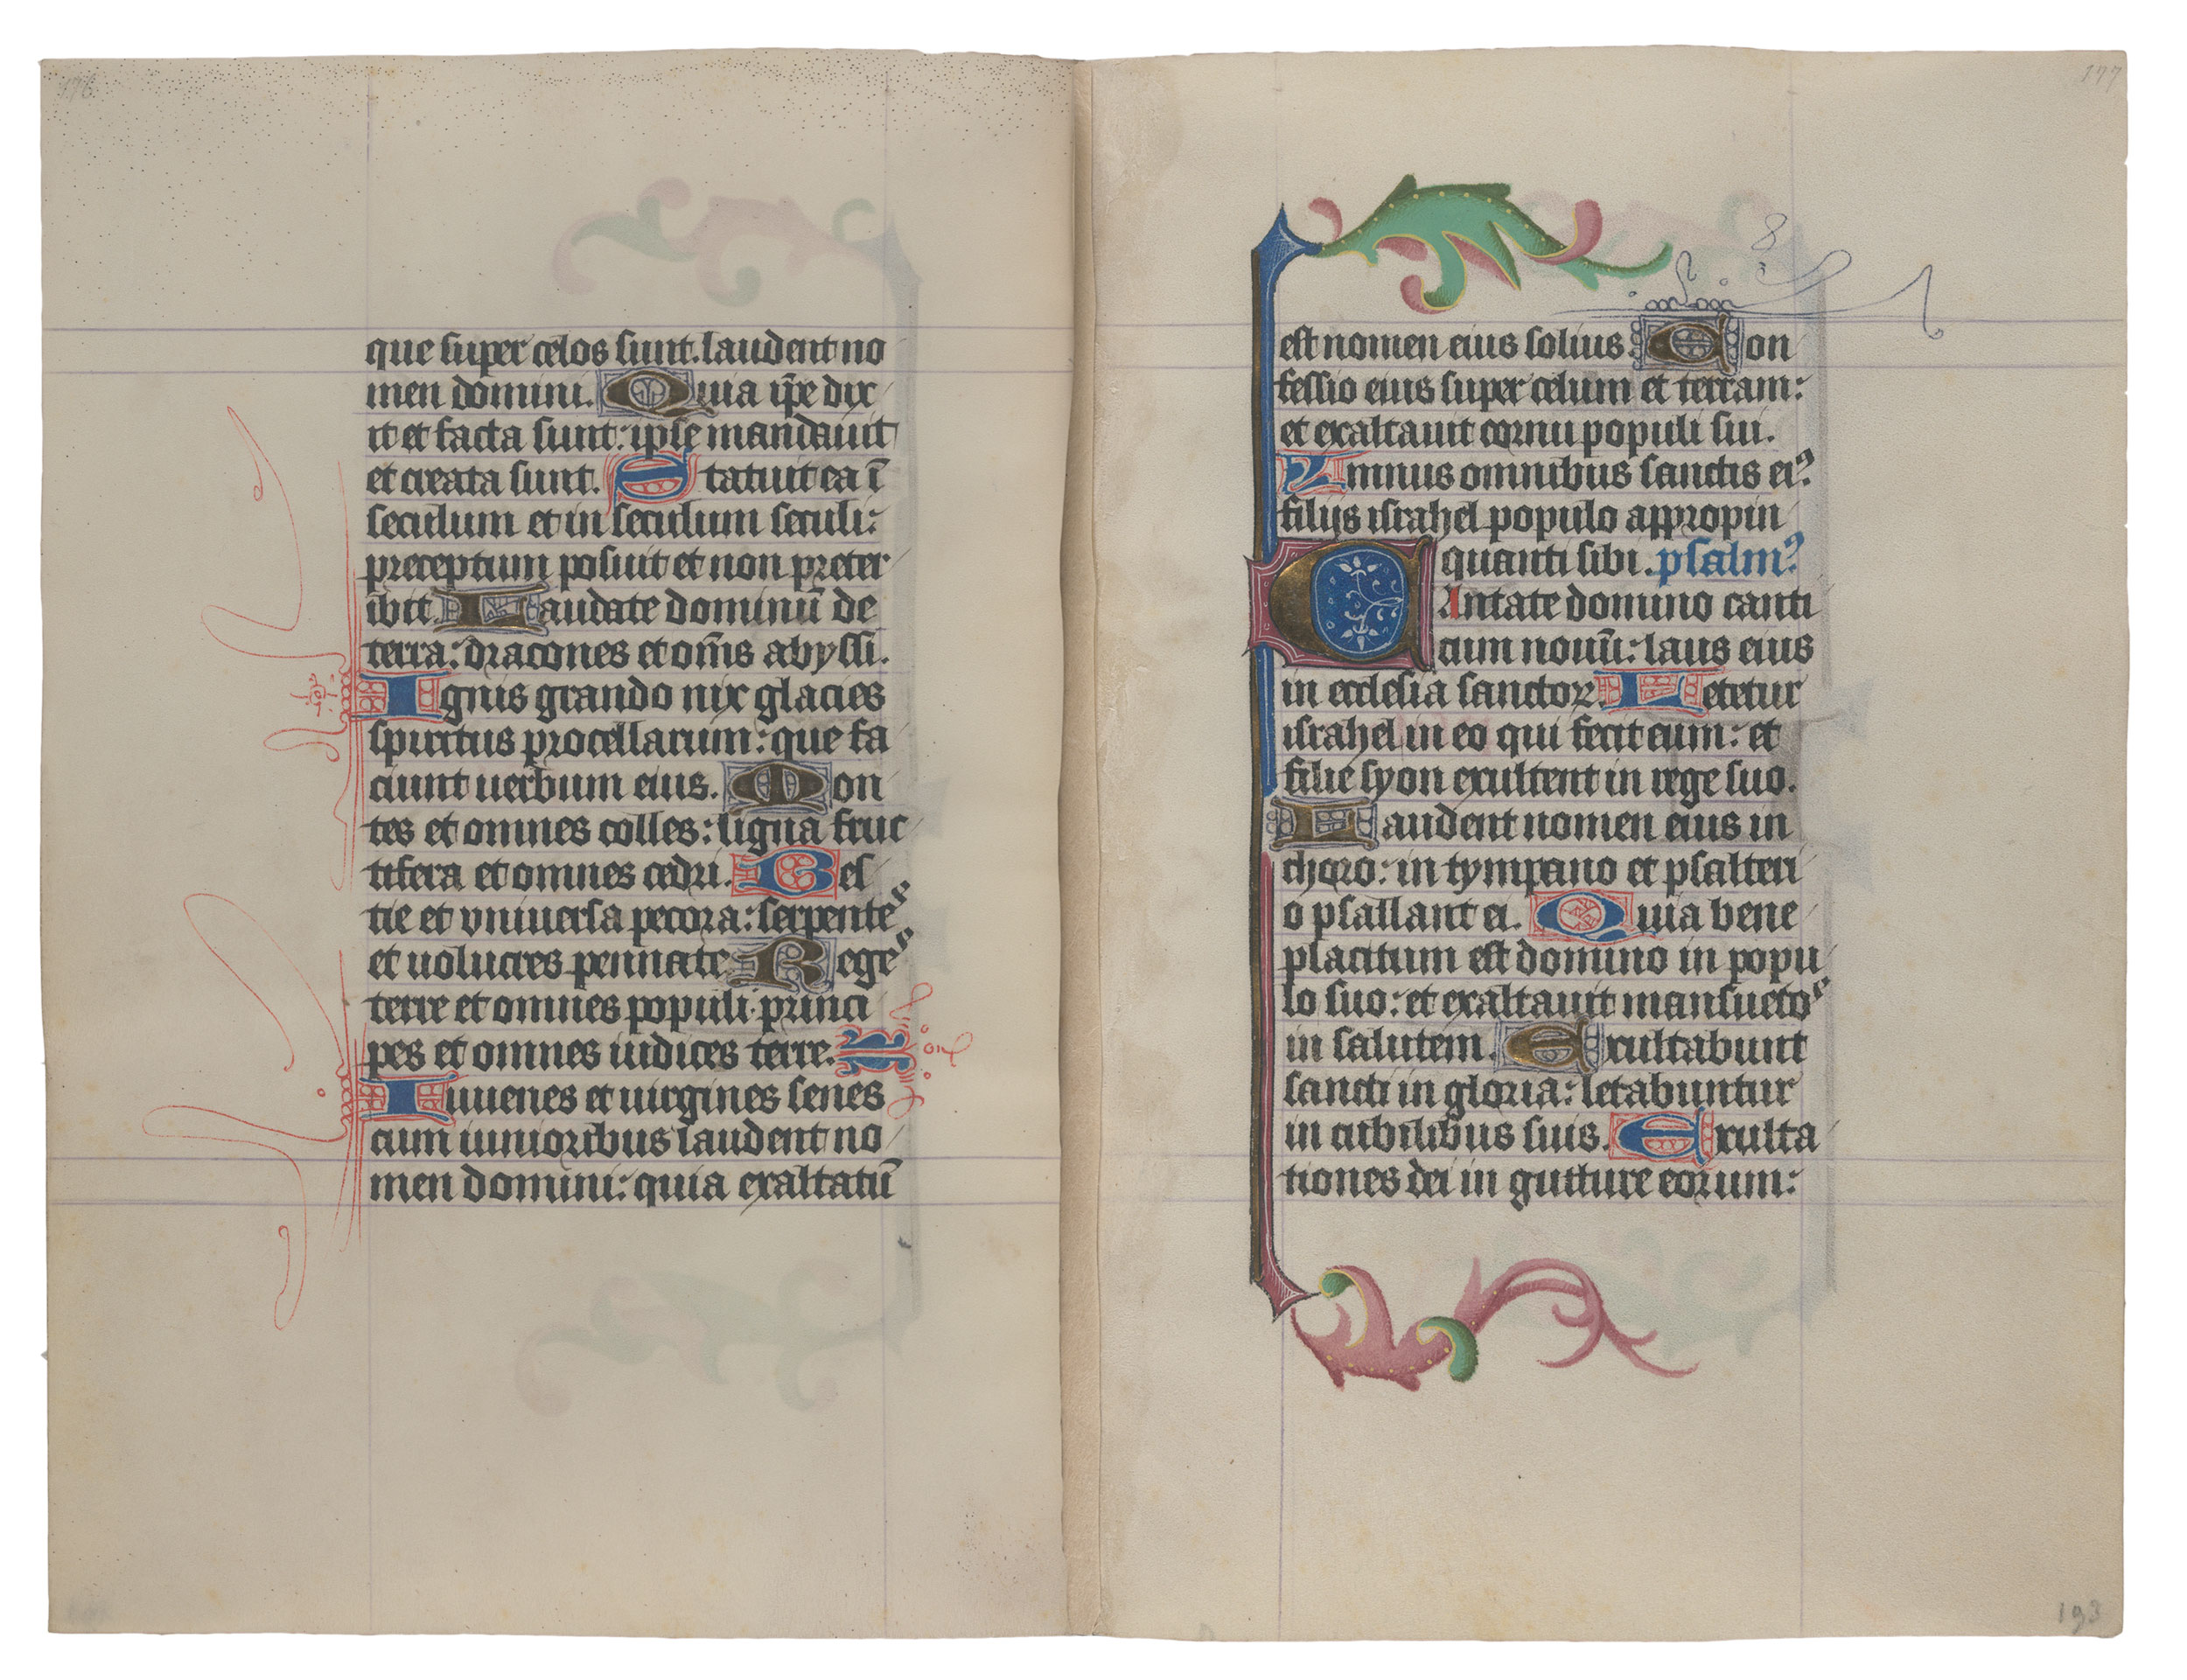 176
que super celos sunt. laudent no
men domini. Quia ip̄e dix
it et facta sunt: ipse mandauit
et creata sunt. Statuit ea ī
seculum et in seculum seculi:
preceptum posuit et non preter
ibit. Laudate dominū de
terra: dracones et om̄s abyssi.
Ignis grando nix glacies
spiritus procellarum: que fa
ciunt uerbum eius. Mon
tes et omnes colles: ligna fruc
tifera et omnes cedri. Bes
tie et vniuersa pecora: serpentes
et uolucres pennate. Reges
terre et omnes populi· princi
pes et omnes iudices terre.
Iuuenes et uirgines senes
cum iunioribus laudent no
men domini: quia exaltatū
177
est nomen eius solius. Con
fessio eius super celum et terram:
et exaltauit cornu populi sui.
Ymnus omnibus sanctis eiꝰ
filijs israhel populo appropin
quanti sibi. psalmꝰ
CAntate domino canti
cum nouū: laus eius
in ecclesia sanctoꝝ. Letetur
israhel in eo qui fecit eum: et
filie syon exultent in rege suo.
Laudent nomen eius in
choro: in tympano et psalteri
o psallant ei. Quia bene
placitum est domino in popu
lo suo: et exaltauit mansuetos
in salutem. Exultabunt
sancti in gloria: letabuntur
in cubilibus suis. Exulta
tiones dei in gutture eorum:
193